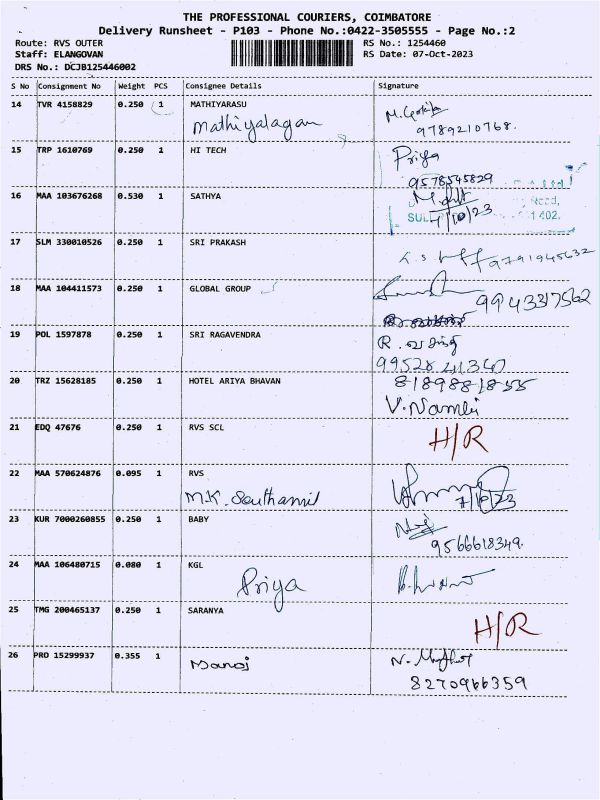 THE PROFESSIONAL COURIERS, COIMBATORE
Delivery Runsheet - P103 - Phone No.:0422-3505555 - Page No.:2
Route: RVS OUTER RS No.: 1254460
Staff: ELANGOVAN RS Date: 07-Oct-2023
DRS No.: DCJB125446002
S No Consignment No Weight PCS Consignee Details Signature
14 TVR 4158829 0.250 1 MATHIYARASU
Mathiyalagan
9789210768.
15 TRP 1610769 0.250 1 HI TECH Priya
9578545829
16 MAA 103676268 0.530 1 SATHYA
Road,
SUL 7/10/23 402.
17 SLM 330010526 0.250 1 SRI PRAKASH
9791945632
18 MAA 104411573 0.250 1 GLOBAL GROUP
994337562
19 POL 1597878 0.250 1 SRI RAGAVENDRA R.
9952841347
20 TRZ 15628185 0.250 1 HOTEL ARIYA BHAVAN 8189881855
V. Nambi
21 EDQ 47676 0.250 1 RVS SCL H/R
22 MAA 570624876 0.095 1 RVS
M.K. Southamil 7/10/23
23 KUR 7000260855 0.250 1 BABY
9566618349.
24 MAA 106480715 0.080 1 KGL
Priya
25 TMG 200465137 0.250 1 SARANYA H/R
26 PRO 15299937 0.355 1
Manoj
8270966359